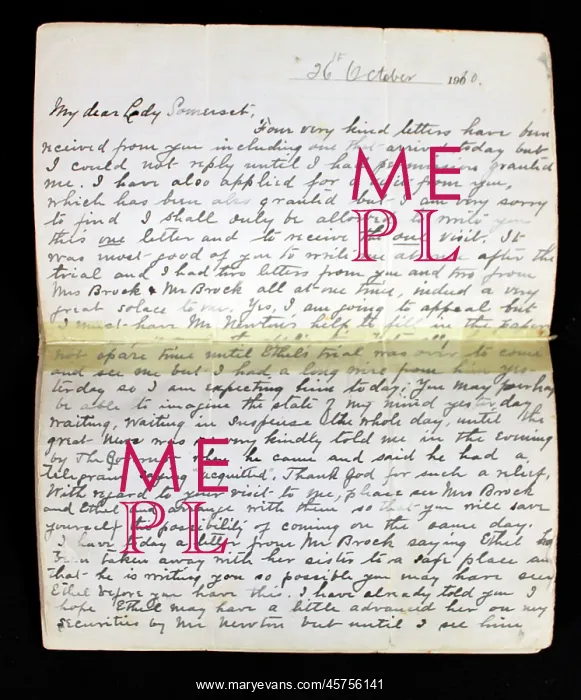 26th October 1910.
My dear Lady Somerset.
Four very kind letters have been
received from you including one that arrived today but
I could not reply until I had permission granted
me. I have also applied for a visit from you,
which has been also granted but I am very sorry
to find I shall only be allowed to write you
this one letter and to receive the one visit. It
was most good of you to write me at once after the
trial and I had two letters from you and two from
Mrs Brock & Mr Brock all at one time, indeed a very
great solace to me. Yes, I am going to appeal but
I must have Mr Newton's help to fill in the
not spare time until Ethel's trial was over to come
and see me but I had a long wire from him yes-
terday so I am expecting him today. You may perhaps
be able to imagine the state of my mind yesterday
waiting, waiting in suspense the whole day, until the
great news was very kindly told me in the evening
by The Governor when he came and said he had a
telegram saying "acquitted". Thank God for such a relief.
With regard to your visit to me, please see Mrs Brock
and Ethel and arrange with them so that you will save
yourself the possibility of coming on the same day.
I have today a letter from Mr Brock saying Ethel has
been taken away with her sister to a safe place and
that he is writing you so possible you may have seen
Ethel before you have this. I have already told you I
hope Ethel may have a little advanced her on my
securities by Mr Newton but until I see him
ME
PL
ME
PL
www.maryevans.com/45756141